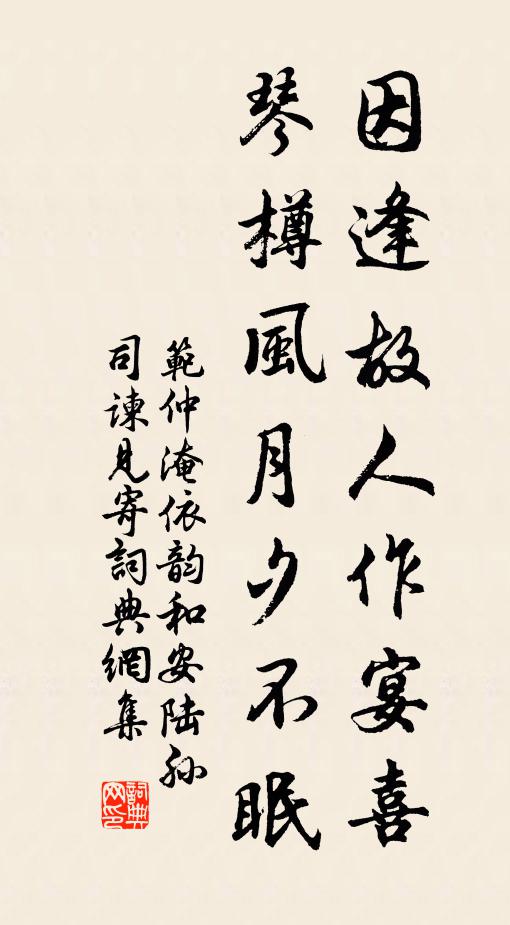 因逢故人作宴喜
琴樽風月夕不眠
範仲淹依韵和安陆孙
司諫見寄詞典網集
詞典
网印